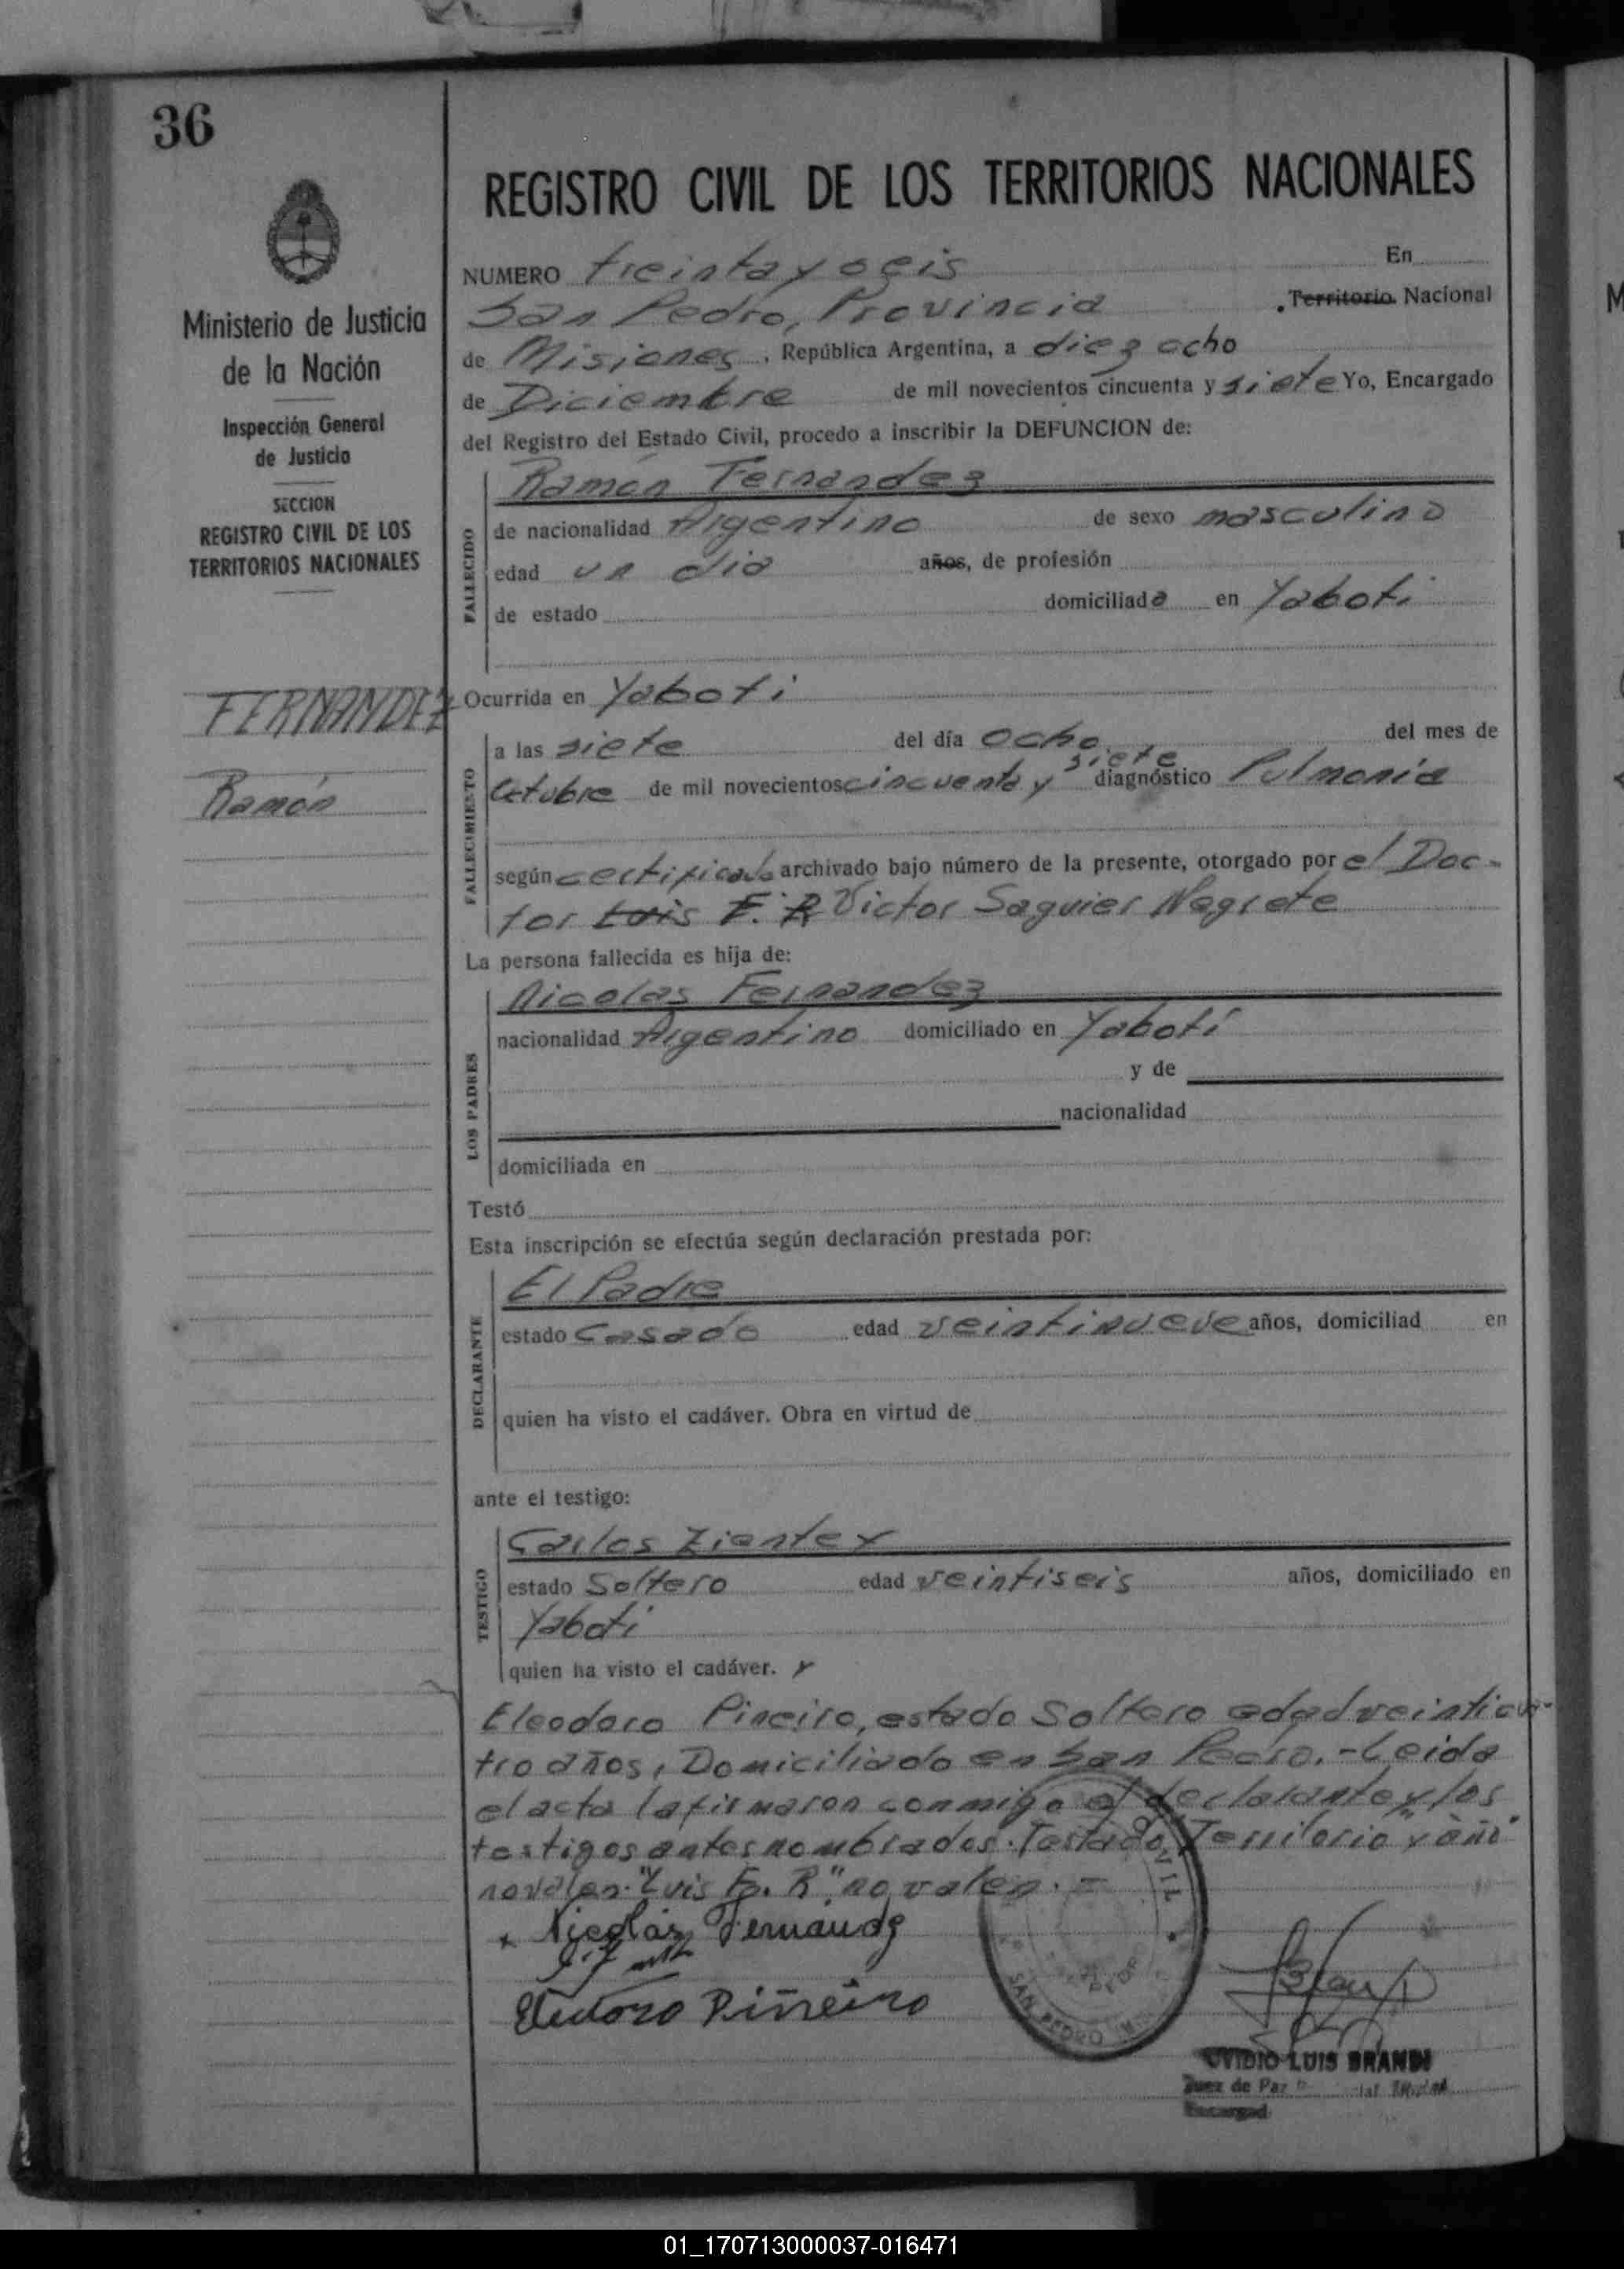 36
REGISTRO CIVIL DE LOS TERRITORIOS NACIONALES
Ministerio de Justicia
de la Nación
Inspección General
de Justicia
SECCION
REGISTRO CIVIL DE LOS
TERRITORIOS NACIONALES
FERNANDEZ
Ramón
NUMERO treinta y seis En
San Pedro, Provincia Territorio Nacional
de Misiones, República Argentina, a diez ocho
de Diciembre de mil novecientos cincuenta y siete Yo, Encargado
del Registro del Estado Civil, procedo a inscribir la DEFUNCION de:
FALLECIDO
Ramón Fernandez
de nacionalidad Argentino de sexo masculino
edad un dia años, de profesión
de estado domiciliado en Yaboti
Ocurrida en Yaboti
FALLECIMIENTO
a las siete del día ocho del mes de
Octubre de mil novecientos cincuenta y siete diagnóstico Pulmonía
según certificado archivado bajo número de la presente, otorgado por el Doc-
tor Luis F. R Victor Saguier Negrete
La persona fallecida es hija de:
LOS PADRES
Nicolas Fernandez
nacionalidad Argentino domiciliado en Yabotí
y de
nacionalidad
domiciliada en
Testó
Esta inscripción se efectúa según declaración prestada por:
DECLARANTE
El Padre
estado Casado edad veintinueve años, domiciliad en
quien ha visto el cadáver. Obra en virtud de
ante el testigo:
TESTIGO
Carlos
estado Soltero edad veintiseis años, domiciliado en
Yaboti
quien ha visto el cadáver. y
Eleodoro Pineiro, estado Soltero edad veinticua-
tro años, Domiciliado en San Pedro.-Leida
el acta la firmaron conmigo el declarante y los
testigos antes nombrados. Testado "Territorio" y "año"
no valen. "Luis F. R" no valen.=
Nicolás Fernandez
Eleodoro Piñeiro
SAN PEDRO
OVIDIO LUIS BRANDI
Juez de Paz
Encargado
01_170713000037-016471